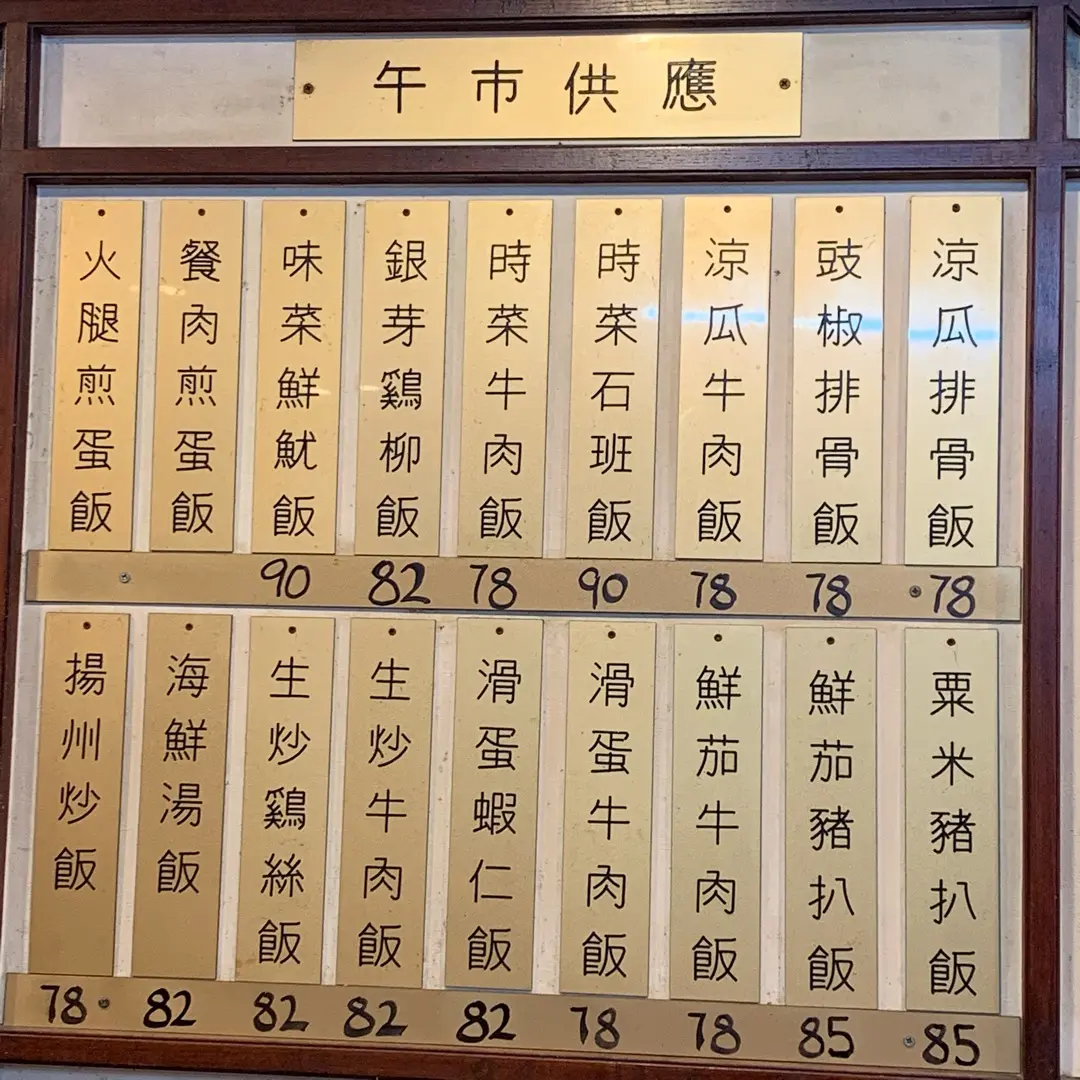 午市供應
涼瓜排骨飯
78
豉椒排骨飯
78
涼瓜牛肉飯
78
時菜石班飯
90
時菜牛肉飯
78
銀芽鷄柳飯
82
味菜鮮魷飯
90
餐肉煎蛋飯
火腿煎蛋飯
粟米豬扒飯
85
鮮茄豬扒飯
85
鮮茄牛肉飯
78
滑蛋牛肉飯
78
滑蛋蝦仁飯
82
生炒牛肉飯
82
生炒鷄絲飯
82
海鮮湯飯
82
揚州炒飯
78